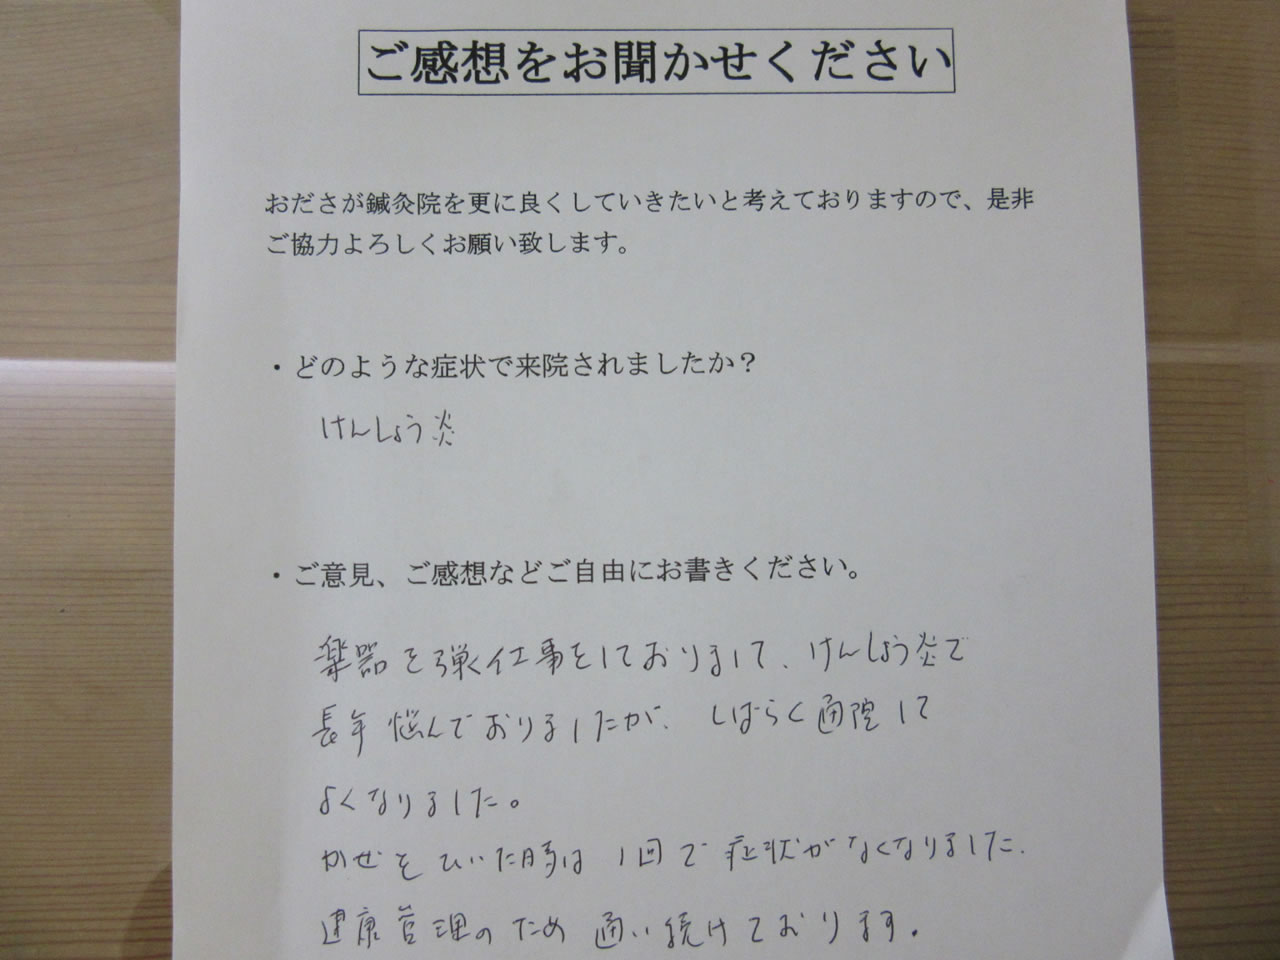 ご感想をお聞かせください
おださが鍼灸院を更に良くしていきたいと考えておりますので、是非
ご協力よろしくお願い致します。
・どのような症状で来院されましたか？
けんしょう炎
・ご意見、ご感想などご自由にお書きください。
楽器を弾く仕事をしておりまして、けんしょう炎で
長年悩んでおりましたが、しばらく通院して
よくなりました。
かぜをひいた時は1回で症状がなくなりました.
健康管理のため通い続けております.